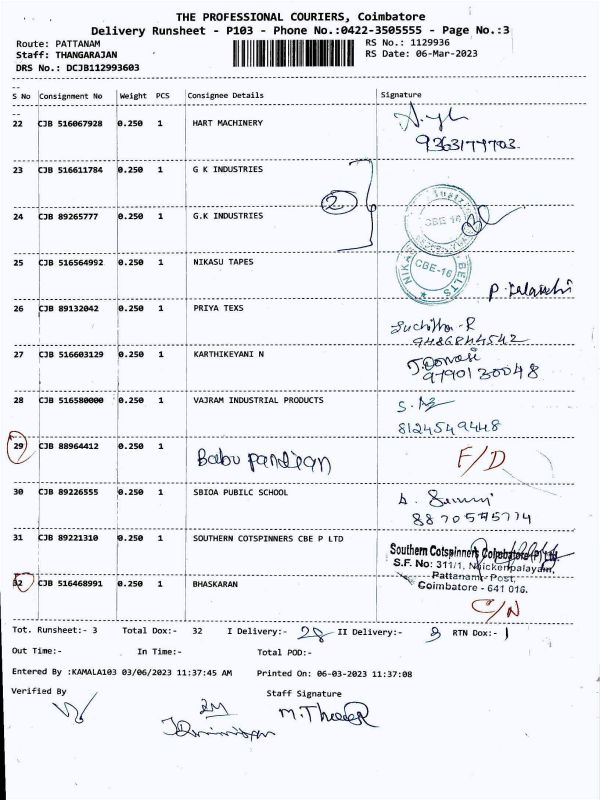 THE PROFESSIONAL COURIERS, Coimbatore
Delivery Runsheet - P103 - Phone No.:0422-3505555 - Page No.:3
Route: PATTANAM RS No.: 1129936
Staff: THANGARAJAN RS Date: 06-Mar-2023
DRS No.: DCJB112993603
S No Consignment No Weight PCS Consignee Details Signature
22 CJB 516067928 0.250 1 HART MACHINERY
9363177703
23 CJB 516611784 0.250 1 G K INDUSTRIES
2
24 CJB 89265777 0.250 1 G.K INDUSTRIES
CBE-16
25 CJB 516564992 0.250 1 NIKASU TAPES
CBE-16 BELTS
26 CJB 89132042 0.250 1 PRIYA TEXS
Suchithra-R
9486844542
27 CJB 516603129 0.250 1 KARTHIKEYANI N
9790130048
28 CJB 516580000 0.250 1 VAJRAM INDUSTRIAL PRODUCTS
8124549448
29 CJB 88964412 0.250 1 Babu pandian F/D
30 CJB 89226555 0.250 1 SBIOA PUBILC SCHOOL
8870575774
31 CJB 89221310 0.250 1 SOUTHERN COTSPINNERS CBE P LTD
Southern Cotspinners Coimbatore (P) Ltd.
S.F. No: 311/1, Naickenpalayam,
Pattanam-Post,
Coimbatore - 641 016.
32 CJB 516468991 0.250 1 BHASKARAN
C/N
Tot. Runsheet:- 3 Total Dox:- 32 I Delivery:- 28 II Delivery:- 3 RTN Dox:- 1
Out Time:- In Time:- Total POD:-
Entered By :KAMALA103 03/06/2023 11:37:45 AM Printed On: 06-03-2023 11:37:08
Verified By Staff Signature